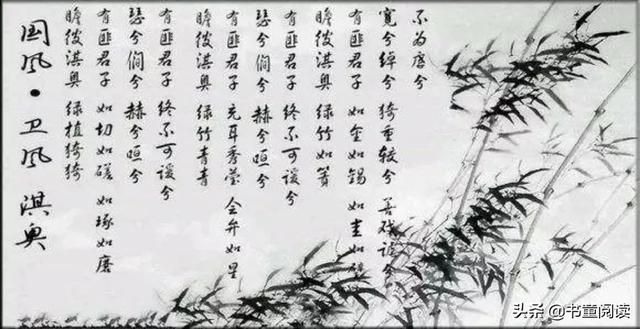 国风·卫风 淇奥
瞻彼淇奥 绿植猗猗
有匪君子 如切如磋 如琢如磨
瑟兮僩兮 赫兮咺兮
有匪君子 终不可谖兮
瞻彼淇奥 绿竹青青
有匪君子 充耳秀莹 会弁如星
瑟兮僩兮 赫兮咺兮
有匪君子 终不可谖兮
瞻彼淇奥 绿竹如箦
有匪君子 如金如锡 如圭如璧
宽兮绰兮 猗重较兮 善戏谑兮
不为虐兮
头条 @书童阅读